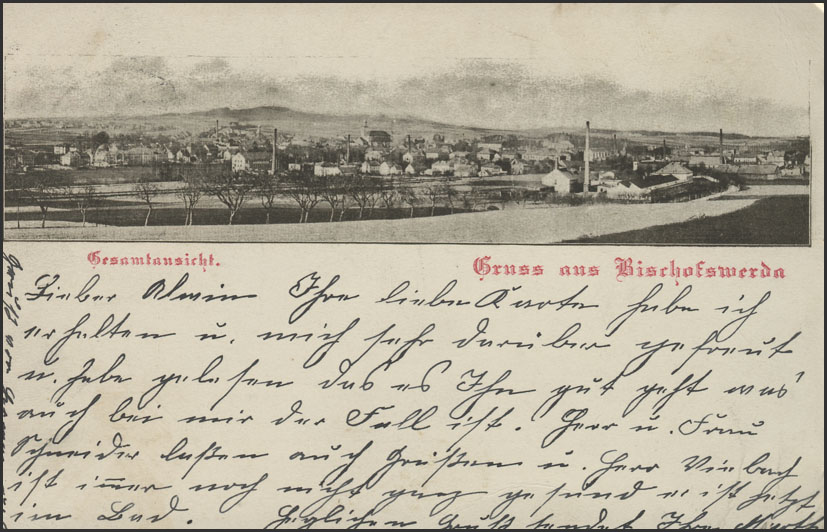 Gesamtansicht.
Gruss aus Bischofswerda
Lieber Alwin Ihre liebe Karte habe ich
erhalten u. mich sehr darüber gefreut
u. habe gelesen das es Ihn gut geht was
auch bei mir der Fall ist. Herr u. Frau
Schneider laßen auch Grüßen u. Herr Viebach
ist im̅er noch nicht ganz gesund er ist jetzt
im Bad. Heglichen Gruß sendet Ihre